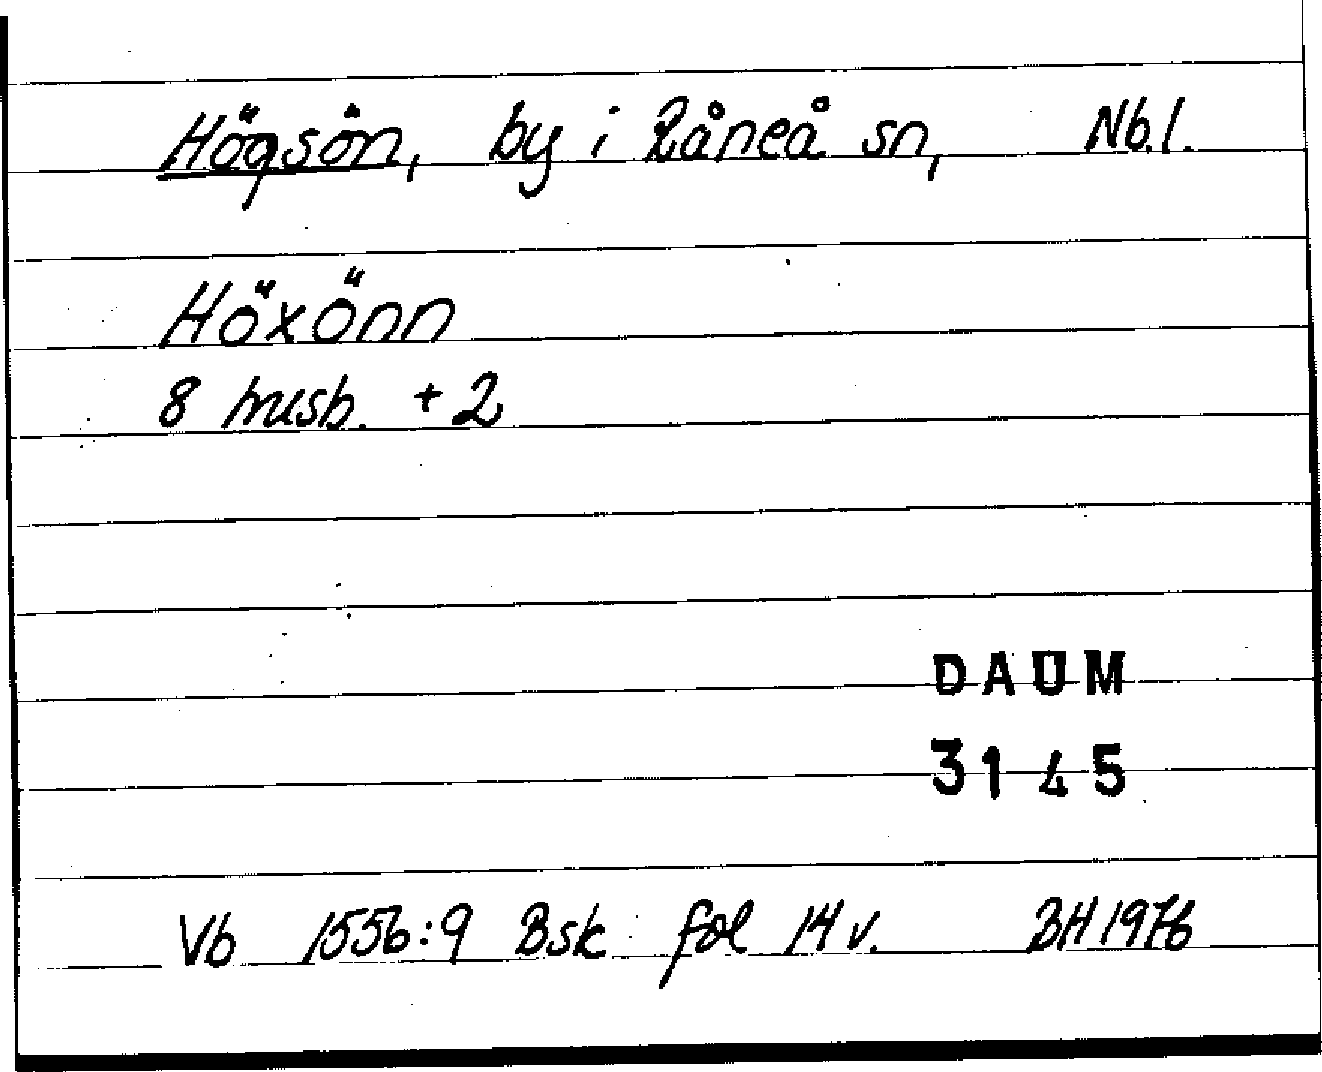 Högsön, by i Råneå sn, Nb.l.
Höxönn
8 husb. + 2
DAUM
3145
Vb 1556:9 Bsk fol 14 v. BH 1976